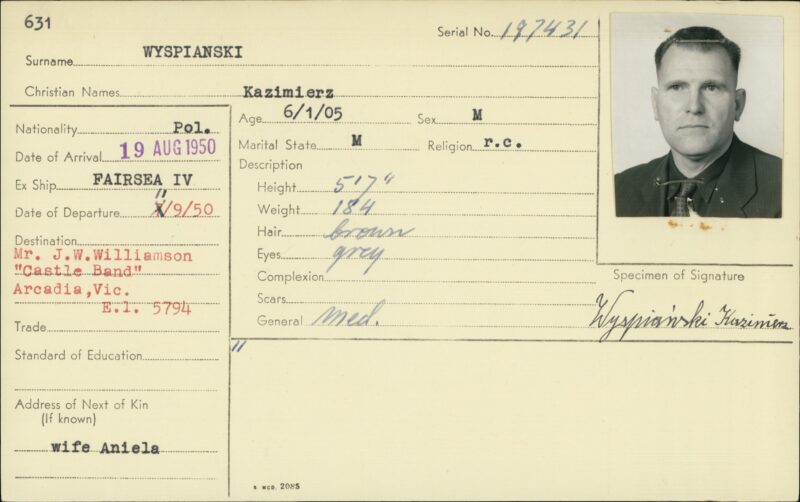 631
Serial No. 197431
Surname WYSPIANSKI
Christian Names Kazimierz
Nationality Pol.
Date of Arrival 19 AUG 1950
Ex Ship FAIRSEA IV
Date of Departure 11/9/50
Destination
Mr. J.W.Williamson
"Castle Band"
Arcadia,Vic.
E.1. 5794
Trade
Standard of Education
Address of Next of Kin
(If known)
wife Aniela
Age 6/1/05 Sex M
Marital State M Religion r.c.
Description
Height 5'7"
Weight 184
Hair brown
Eyes grey
Complexion
Scars
General med.
Specimen of Signature
Wyspiański Kazimierz
2085